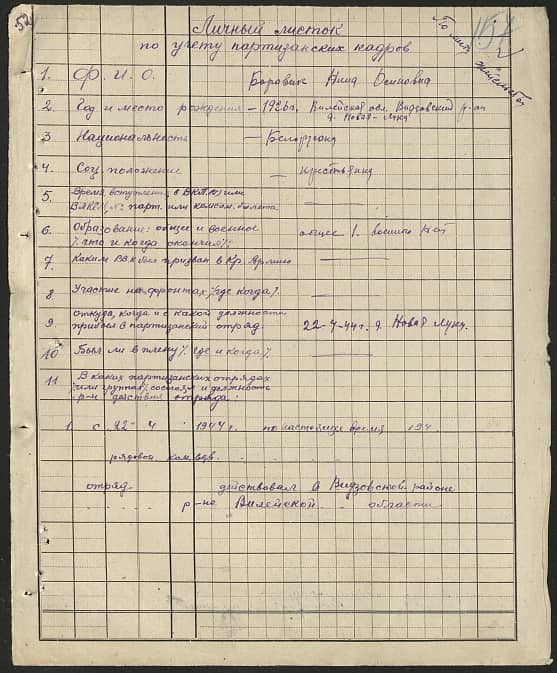 52
Личный листок
по учету партизанских кадров
По месту жительства
1. Ф. И. О. Боровик Нина Осиповна
2. Год и место рождения – 1926г, Вилейская обл. Видзовский р-он
д. Новая-Лука
3 Национальность — Белорусска
4. Соц. положение — крестьянка
5. Время вступления в ВКП(б) или
ВЛКСМ, № парт. или комсом. билета —
6. Образование: общее и военное
/что и когда окончил/: общее 1. военного нет
7. Каким ВВК был призван в Кр. Армию —
8. Участие на фронтах /где когда/. —
9. Откуда, когда и с какой должности
прибыл в партизанский отряд. 22-4-44г. д. Новая Лука.
10 Был ли в плену /. где и когда/. —
11 В каких партизанских отрядах
/или группах/ состоял и должность
р-н действия отряда:
1. с 22 - 4 1944 г. по настоящее время 194
рядовой
отряд действовал в Видзовской районе
р-не Вилейской области